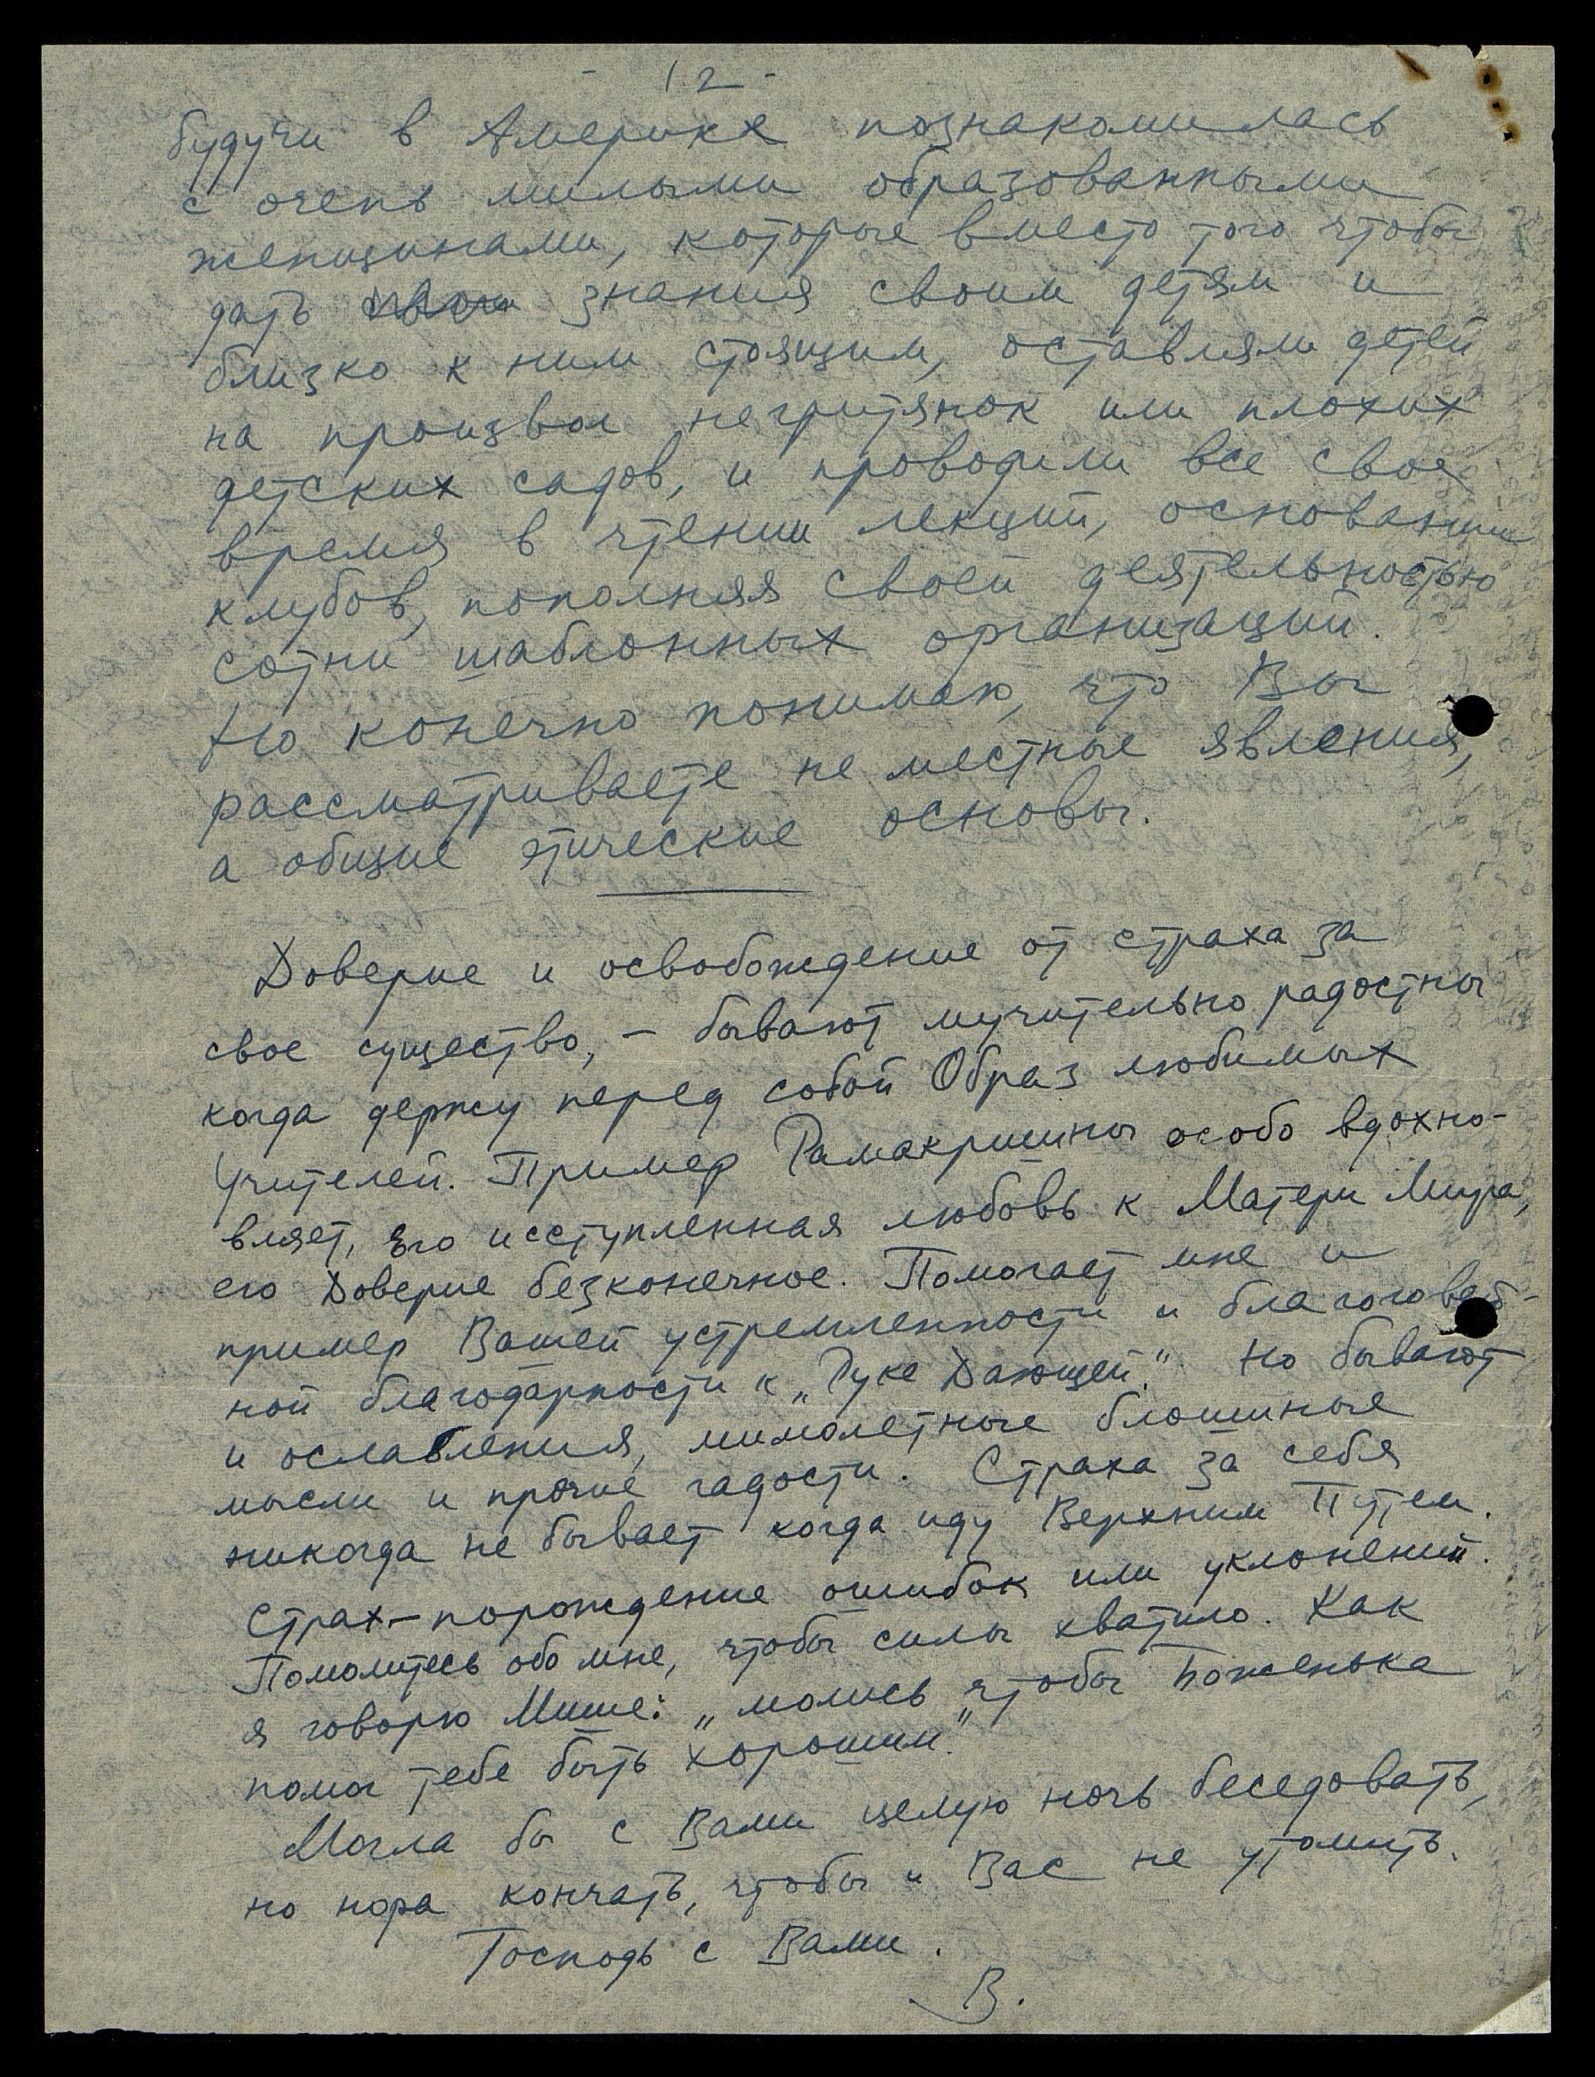 - 12 -
будучи в Америке познакомилась
с очень милыми образованными
женщинами, которые вместо того чтобы
дать знания своим детям и
близко к ним стоящим, оставляли детей
на произвол негритянок или плохих
детских садов, и проводили все свое
время в чтении лекций, основании
клубов, пополняя своей деятельностью
сотни шаблонных организаций.
Но конечно понимаю, что Вы
рассматриваете не местные явления,
а общие этические основы.
Доверие и освобождение от страха за
свое существо, – бывают мучительно радостны
когда держу перед собой Образ любимых
Учителей. Пример Рамакришны особо вдохно-
вляет, его исступленная любовь к Матери Мира,
его Доверие безконечное. Помогает мне и
пример Вашей устремленности и благоговей-
ной благодарности к „Руке Дающей“. Но бывают
и ослабления, мимолетные блошиные
мысли и прочие гадости. Страха за себя
никогда не бывает когда иду Верхним Путем.
Страх – порождение ошибок или уклонений.
Помолитесь обо мне, чтобы силы хватило. Как
я говорю Мише: „молись чтобы Боженька
помог тебе быть хорошим“.
Могла бы с Вами целую ночь беседовать,
но пора кончать, чтобы и Вас не утомить.
Господь с Вами.
В.